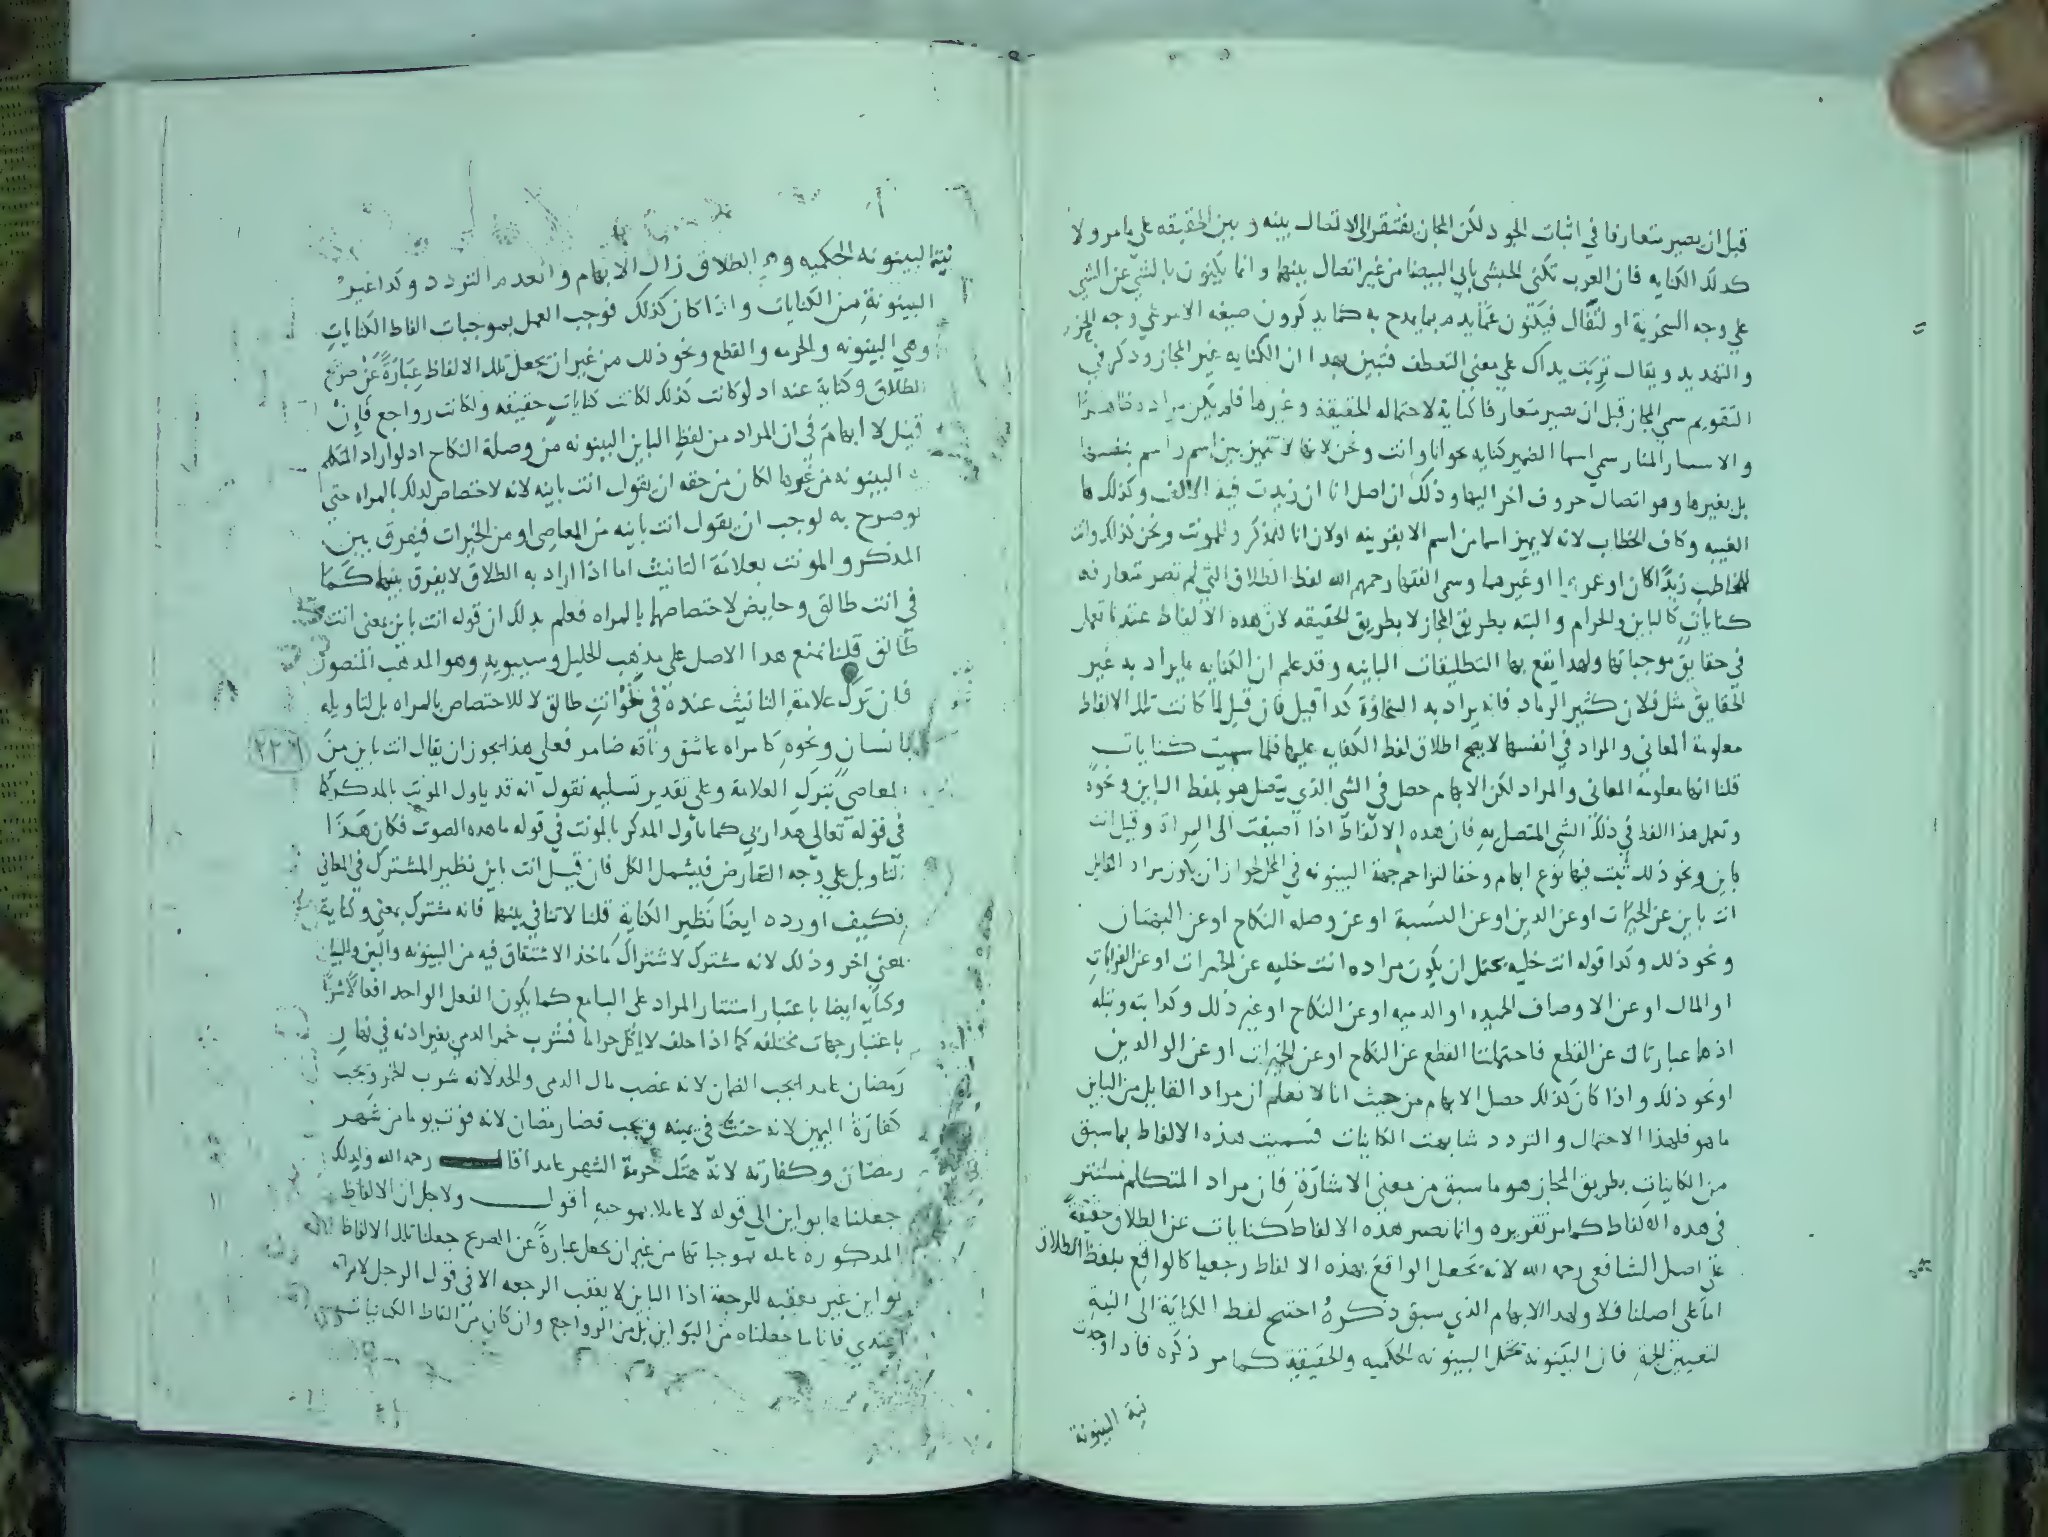 قبل ان يصير متعارفا في اثبات الجود لكن المجاز يفتقر الى الاتصال بينه و بين الحقيقه على ما مر ولا
كذلك الكنايه فان العرب تكنى الحبشى بابى البيضا من غير اتصال بينهما وانما يكنون بالشي عن الشي
على وجه السخرية او التفال فيكنون عما يذم بما يمدح به كما يذكرون صيغه الامر على وجه الزجر
والتهديد ويقال تربت يداك على معنى التعطف فتبين بهذا ان الكنايه غير المجاز وذكر في
التقويم سمى المجاز قبل ان يصير متعارفا كناية لاحتماله الحقيقة وغيرها فلم يكن مراده ظاهرا
والاسمار المنار سمى اسما الضمير كنايه نحو انا وانت ونحن لانها لا تميز بين اسم واسم بنفسها
بل بغيرها وهو اتصال حروف اخر اليها وذلك ان اصل انا ان زيدت فيه الالف وكذلك ها
الغيبه وكاف الخطاب لانه لا يميز اسما من اسم الا بقرينه اولان انا للمذكر والمونث ونحن كذلك وانت
للمخاطب زيدا كان او عمرا او غيرهما وسمى الفقها رحمهم الله لفظ الطلاق التى لم تصر متعارفه
كنايات كالباين والحرام والبته بطريق المجاز لا بطريق الحقيقه لان هذه الالفاظ عندنا تعمل
في حقايق موجباتها ولهذا يقع بها التطليقات الباينه وقد علم ان الكنايه ما يراد به غير
الحقايق مثل فلان كثير الرماد فانه يراد به السخاوة كذا قيل فان قيل لما كانت تلك الالفاظ
معلومة المعانى والمراد في انفسها لا يصح اطلاق لفظ الكنايه عليها فلما سميت كنايات
قلنا انها معلومة المعانى والمراد لكن الابهام حصل في الشى الذي يتصل هو بلفظ الباين ونحوه
وتعمل هذا اللفظ في ذلك الشى المتصل به فان هذه الالفاظ اذا اضيفت الى المراة وقيل انت
باين ونحو ذلك ثبت فيها نوع ابهام وخفا لتزاحم جهة البينونه في المحل لجواز ان يكون مراد القايل
انت باين عن الخيرات او عن الدين او عن النسبة او عن وصله النكاح او عن البهتان
ونحو ذلك وكذا قوله انت خليه يحتمل ان يكون مراده انت خليه عن الخيرات او عن القرابات
او المال او عن الاوصاف الحميده او الذميمه او عن النكاح او غير ذلك وكذا بته وبتله
اذ هما عبارتان عن القطع فاحتملتا القطع عن النكاح او عن الخيرات او عن الوالدين
او نحو ذلك واذا كان كذلك حصل الابهام من حيث انا لا نعلم ان مراد القايل من الباين
ما هو فلهذا الاحتمال والتردد شابهت الكنايات فسميت هذه الالفاظ بما سبق
من الكنايات بطريق المجاز هو ما سبق من معنى الاشارة فان مراد المتكلم مستتر
في هذه الالفاظ كما مر تقريره وانما تصير هذه الالفاظ كنايات عن الطلاق حقيقة
على اصل الشافعى رحمه الله لانه يجعل الواقع بهذه الالفاظ رجعيا كالواقع بلفظ الطلاق
اما على اصلنا فلا ولهذا الابهام الذي سبق ذكره احتيج لفظ الكناية الى النية
لتعيين الجهة فان البينونه تحتمل البينونه الحكميه والحقيقيه كما مر ذكره فاذا وجدت
نية البينونة
نية البينونه الحكميه وهى الطلاق زال الابهام وانعدم التردد وكذا غير
البينونة من الكنايات واذا كان كذلك فوجب العمل بموجبات الفاظ الكنايات
وهي البينونه والحرمه والقطع ونحو ذلك من غير ان يجعل تلك الالفاظ عبارة عن صريح
الطلاق وكناية عنه اذ لو كانت كذلك لكانت كنايات حقيقه ولكانت رواجع فان
قيل لا ابهام في ان المراد من لفظ الباين البينونه من وصلة النكاح اذ لو اراد المتكلم
البينونه من غيرها لكان من حقه ان يقول انت باينه لانه لا اختصاص لذلك بالمراه حتى
لو صرح به لوجب ان يقول انت باينه من المعاصى او من الخيرات فيفرق بين
المذكر والمونث بعلامة التانيث اما اذا اراد به الطلاق لا يفرق بينهما كما
في انت طالق وحايض لاختصاصهما بالمراه فعلم بذلك ان قوله انت باين بمعنى انت
طالق قلنا نمنع هذا الاصل على مذهب الخليل وسيبويه وهو المذهب المنصور
فان ترك علامة التانيث عنده في نحو انت طالق لا للاختصاص بالمراه بل لتاويله
بانسان ونحوه كامراه عاشق وناقه ضامر فعلى هذا يجوز ان يقال انت باين من
المعاصى بترك العلامة وعلى تقدير تسليمه نقول انه قد ياول المونث بالمذكر كما
في قوله تعالى هذا ربى كما ياول المذكر بالمونث في قوله ما هذه الصوت فكان هذا
التاويل على وجه التعارض فيشمل الكل فان قيل انت باين نظير المشترك في المعانى
فكيف اورده ايضا نظير الكناية قلنا لا تنافي بينهما فانه مشترك بمعنى وكناية
بمعنى اخر وذلك لانه مشترك لاشتراك ماخذ الاشتقاق فيه من البينونه والبين والبيان
وكنايه ايضا باعتبار استتار المراد على السامع كما يكون الفعل الواحد افعالا شرعا
باعتبار جهات مختلفه كما اذا حلف لا ياكل حراما فشرب خمر الذمي بغير اذنه في نهار
رمضان عامدا يجب الضمان لانه غصب مال الذمى والحد لانه شرب الخمر وتجب
كفارة اليمين لانه حنث في يمينه ويجب قضا رمضان لانه فوت يوما من شهر
رمضان وكفارته لانه هتك حرمة الشهر عامدا قال رحمه الله ولذلك
جعلناها بواين الى قوله لا عاملا بموجبه اقول ولاجل ان الالفاظ
المذكوره عامله بموجباتها من غير ان يجعل عبارة عن الصريح جعلنا تلك الالفاظ
بواين غير معقبه للرجعة اذ الباين لا يعقب الرجعه الا في قول الرجل لامراته
اعتدي فانا ما جعلناه من البواين بل من الرواجع وان كان من الفاظ الكنايات
٢٢٦